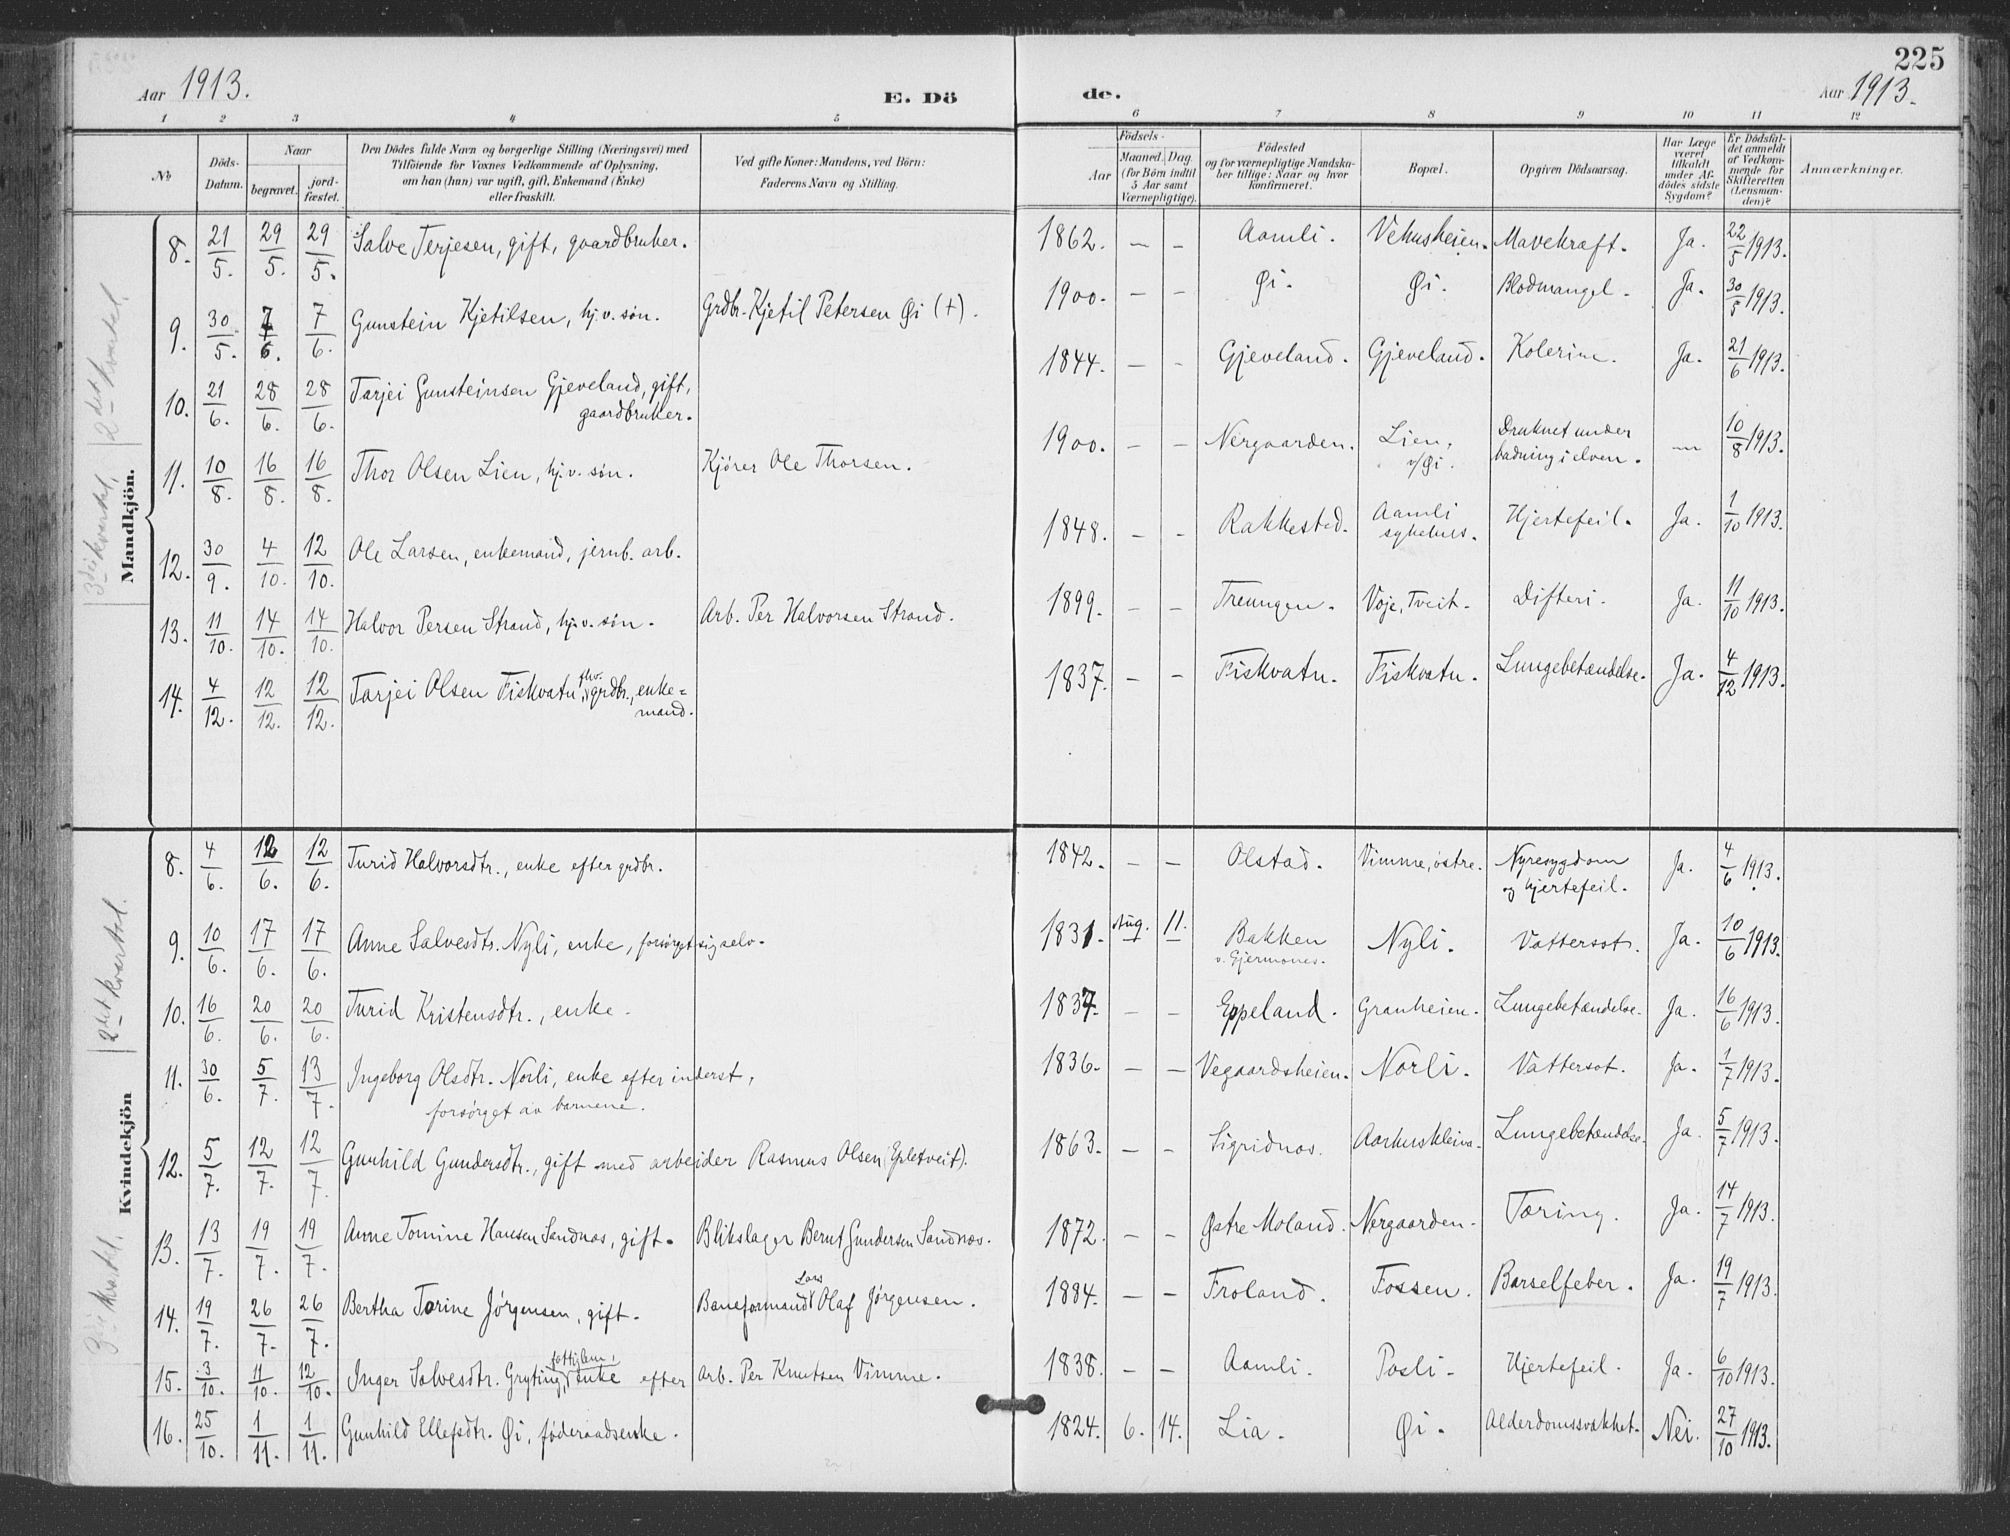 225
Aar 1913.
E. Dö
de.
Aar 1913.
1 2 3 4 5
6 7 8 9 10 11 12
No
Döds-
Datum.
Naar
begravet.
jord-
fæstet.
Den Dödes fulde Navn og borgerlige Stilling (Næringsvei) med
Tilföiende for Voxnes Vedkommende af Oplysning,
om han (hun) var ugift, gift, Enkemand (Enke)
eller fraskilt.
Ved gifte Koner: Mandens, ved Börn:
Faderens Navn og Stilling.
Födsels-
Aar
Maaned. Dag.
(for Börn indtil
5 Aar samt
Værnepligtige).
Födested
og for værnepligtige Mandska-
ber tillige: Naar og hvor
konfirmeret.
Bopæl.
Opgiven Dödsaarsag.
Har Læge
været
tilkaldt
under Af-
dödes sidste
Sygdom?
Er Dödsfal-
det anmeldt
af Vedkom-
mende for
Skifteretten
(Lensman-
den)?
Anmærkninger.
2det kvartal.
3die kvartal.
Mandkjön.
8. 21/5. 29/5. 29/5. Salve Terjesen, gift, gaardbruker. 1862. — - Aamli. Vehusheien. Mavekræft. Ja. 22/5 1913.
9. 30/5. 7/6. 7/6. Gunstein Kjetilsen, hj. v. søn. Grdbr. Kjetil Petersen Øi (+). 1900. — - Øi. Øi. Blodmangel. Ja. 30/5 1913.
10. 21/6. 28/6. 28/6. Tarjei Gunsteinsen Gjeveland, gift,
gaardbruker. 1844. — - Gjeveland. Gjeveland. Kolerine. Ja. 21/6 1913.
11. 10/8. 16/8. 16/8. Thor Olsen Lien, hj. v. søn. Kjörer Ole Thorsen. 1900. — - Nergaarden. Lien, Druknet under
v/Øi. badning i elven. — 10/8 1913.
12. 30/9. 4/10. 12/10. Ole Larsen, enkemand, jernb. arb. 1848. — - Rakkestad. Aamli
sykehus. Hjertefeil. Ja. 1/10 1913.
13. 11/10. 14/10. 14/10. Halvor Persen Strand, hj. v. søn. Arb. Per Halvorsen Strand. 1899. — - Treungen. Voje, Tveit. Difteri. Ja. 11/10 1913.
14. 4/12. 12/12. 12/12. Tarjei Olsen Fiskvatn, fhv. grdbr., enke=
mand. 1837. — - Fiskvatn. Fiskvatn. Lungebetændelse. Ja. 4/12 1913.
2det kvartal.
3die kvartal.
Kvindekjön
8. 4/6. 12/6. 12/6. Turid Halvorsdtr., enke efter grdbr. 1842. — — Olstad. Vimme, østre. Nyresygdom
og hjertefeil. Ja. 4/6 1913.
9. 10/6. 17/6. 17/6. Anne Salvesdtr. Nyli, enke, forsörget sig selv. 1831. Aug. 11. Bakken
v. Gjermones. Nyli. Vattersot. Ja. 10/6 1913.
10. 16/6. 20/6. 20/6. Turid Kristensdtr., enke. 1837. — — Eppeland. Granheien. Lungebetændelse. Ja. 16/6 1913.
11. 30/6. 5/7. 13/7. Ingeborg Olsdtr. Norli, enke efter inderst,
forsörget av barnene. 1836. — — Vegaardsheien. Norli. Vattersot. Ja. 1/7 1913.
12. 5/7. 12/7. 12/7. Gunhild Gundersdtr., gift med arbeider Rasmus Olsen (Epletveit). 1863. — — Sigridnas. Aarhuskleiva. Lungebetændelse. Ja. 5/7 1913.
13. 13/7. 19/7. 19/7. Anne Tomine Hansen Sandnas, gift. Blikslager Bernt Gundersen Sandnas. 1872. — — Østre Moland. Nergaarden. Tæring. Ja. 14/7 1913.
14. 19/7. 26/7. 26/7. Bertha Torine Jörgensen, gift. Baneformand Lars Olaf Jörgensen. 1884. — — Froland. Fossen. Barselfeber. Ja. 19/7 1913.
15. 3/10. 11/10. 12/10. Inger Salvesdtr. Gryting, fattiglem, enke efter Arb. Per Knutsen Vimme. 1838. — — Aamli. Posli. Hjertefeil. Ja. 6/10 1913.
16. 25/10. 1/11. 1/11. Gunhild Ellefsdtr. Øi, föderaadsenke. 1824. 6. 14. Lia. Øi. Alderdomssvakhet. Nei. 27/10 1913.